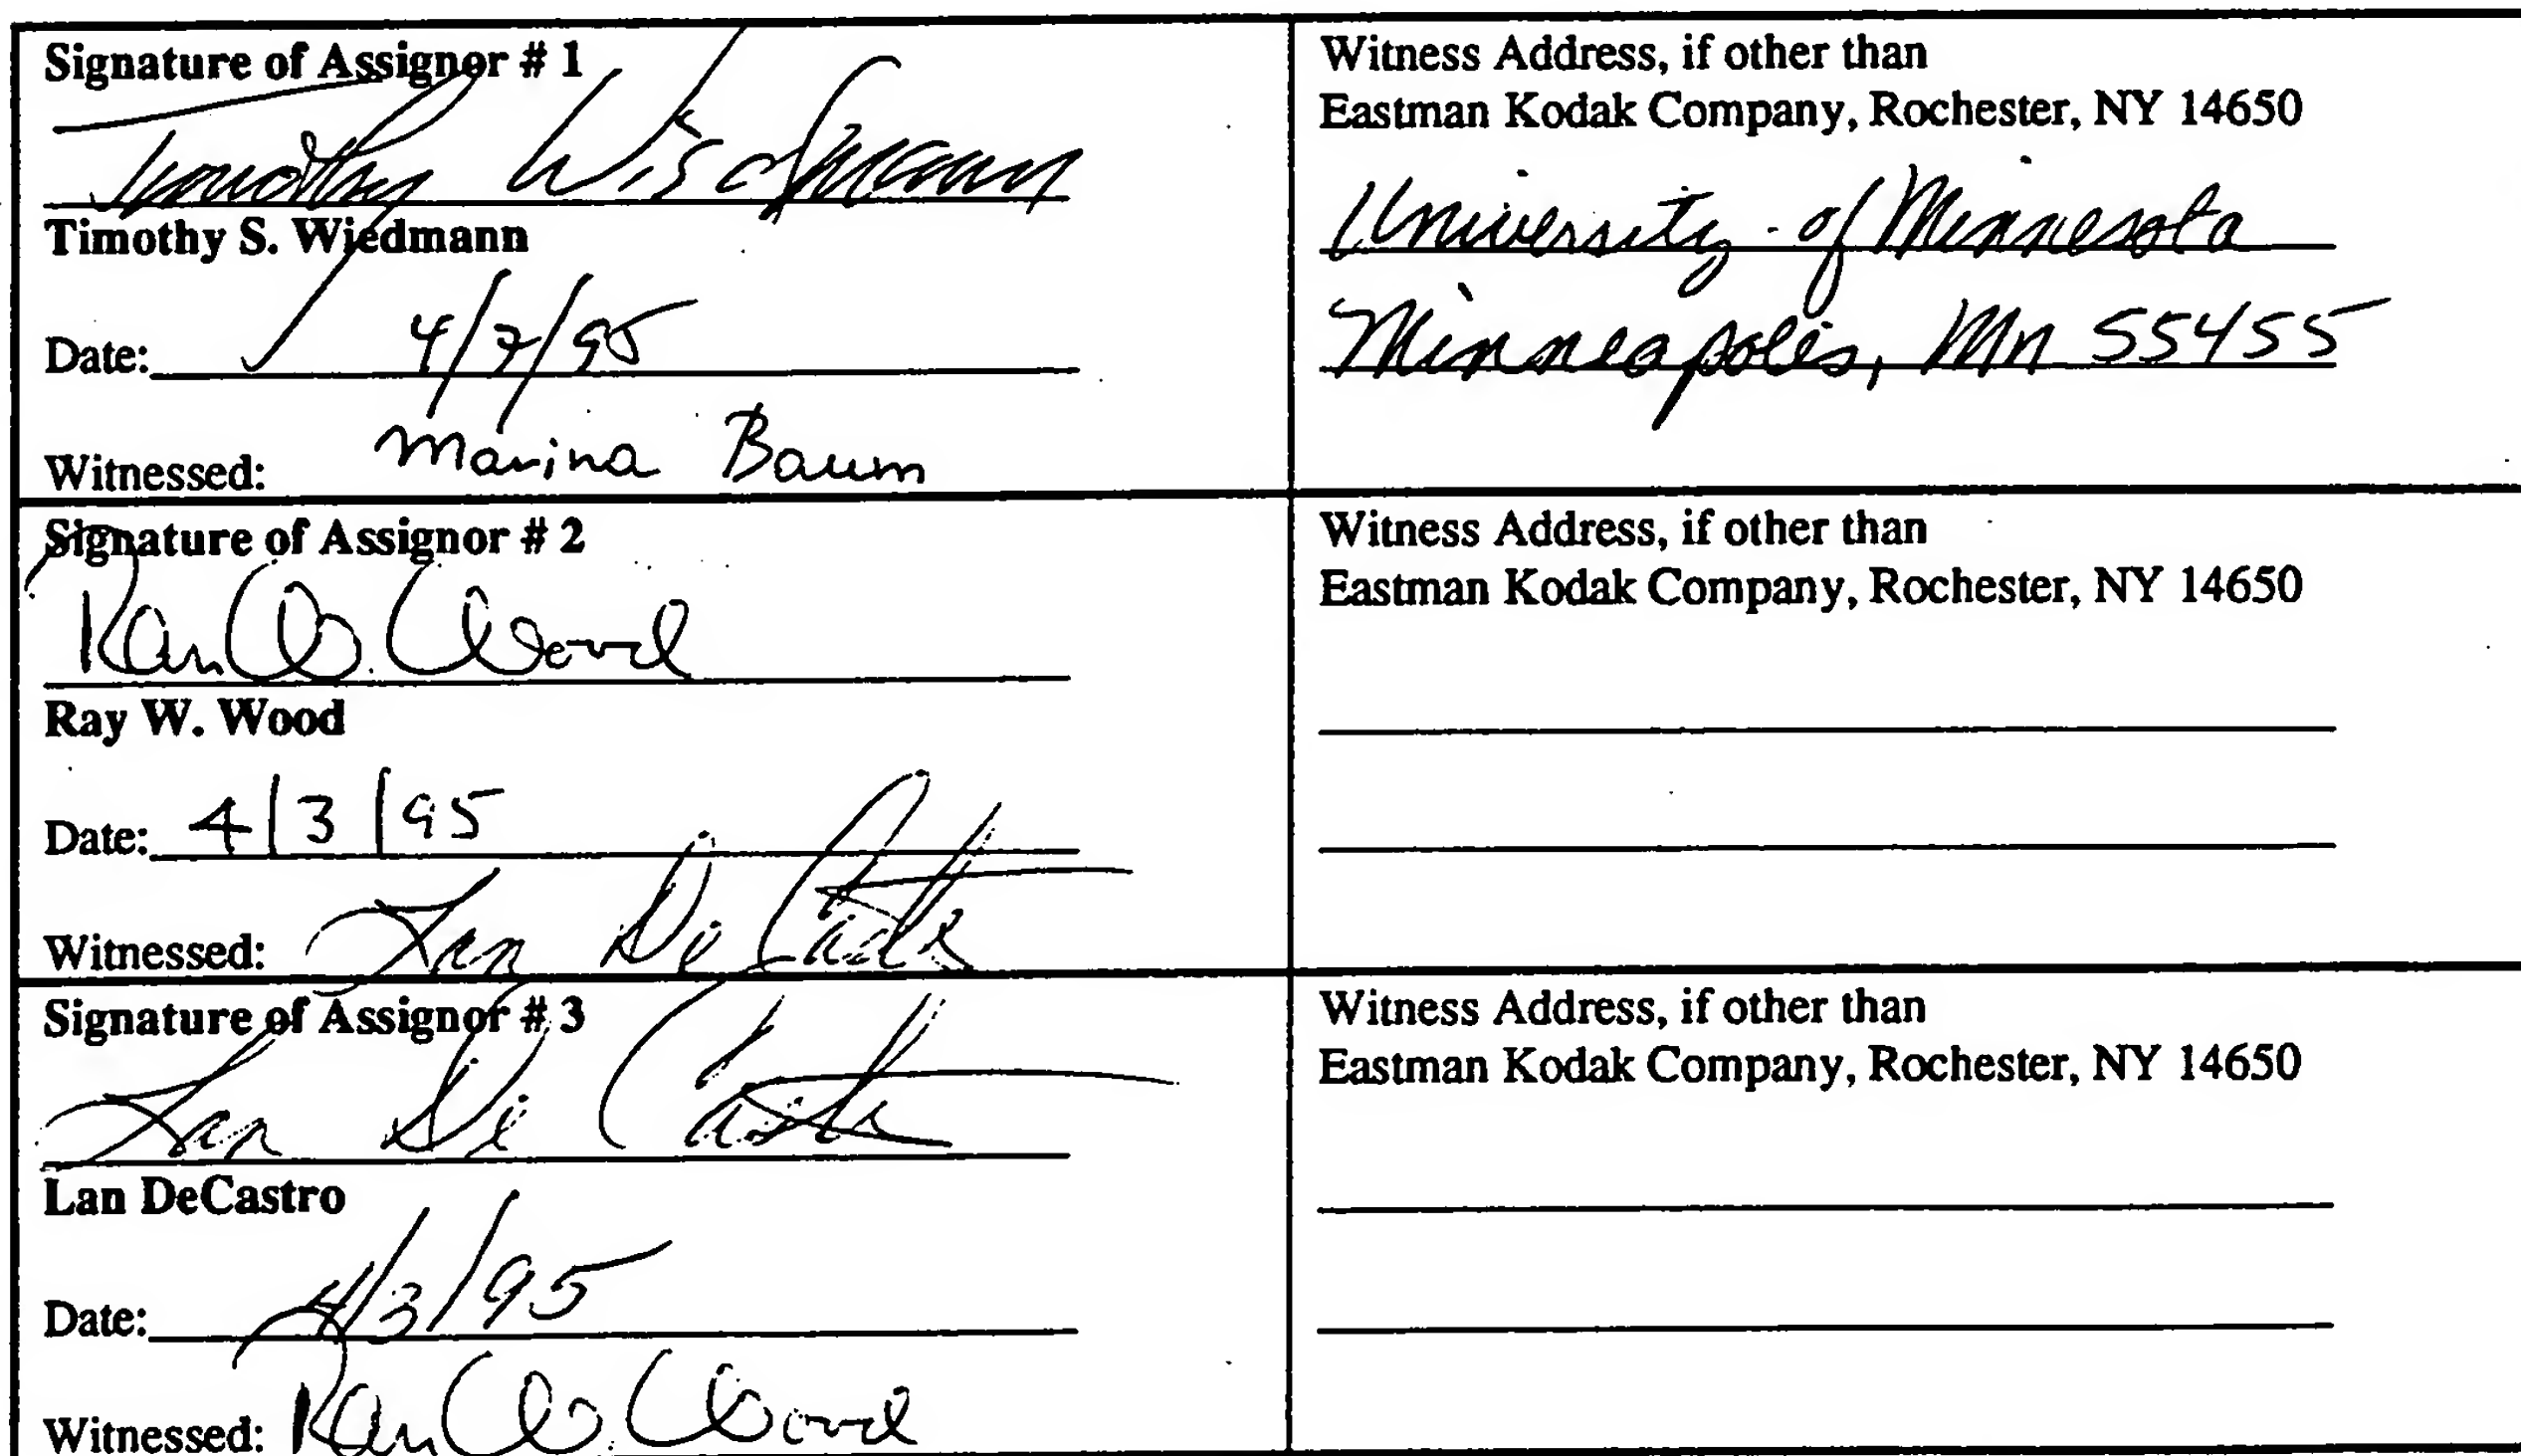 Signature of Assignor # 1
Timothy Wiedmann
Timothy S. Wiedmann
Date: 4/7/95
Witnessed: Marina Baum
Witness Address, if other than
Eastman Kodak Company, Rochester, NY 14650
University of Minnesota
Minneapolis, Mn 55455
Signature of Assignor # 2
Ray W. Wood
Ray W. Wood
Date: 4/3/95
Witnessed: Lan De Castro
Witness Address, if other than
Eastman Kodak Company, Rochester, NY 14650
Signature of Assignor # 3
Lan De Castro
Lan DeCastro
Date: 4/3/95
Witnessed: Ray W. Wood
Witness Address, if other than
Eastman Kodak Company, Rochester, NY 14650